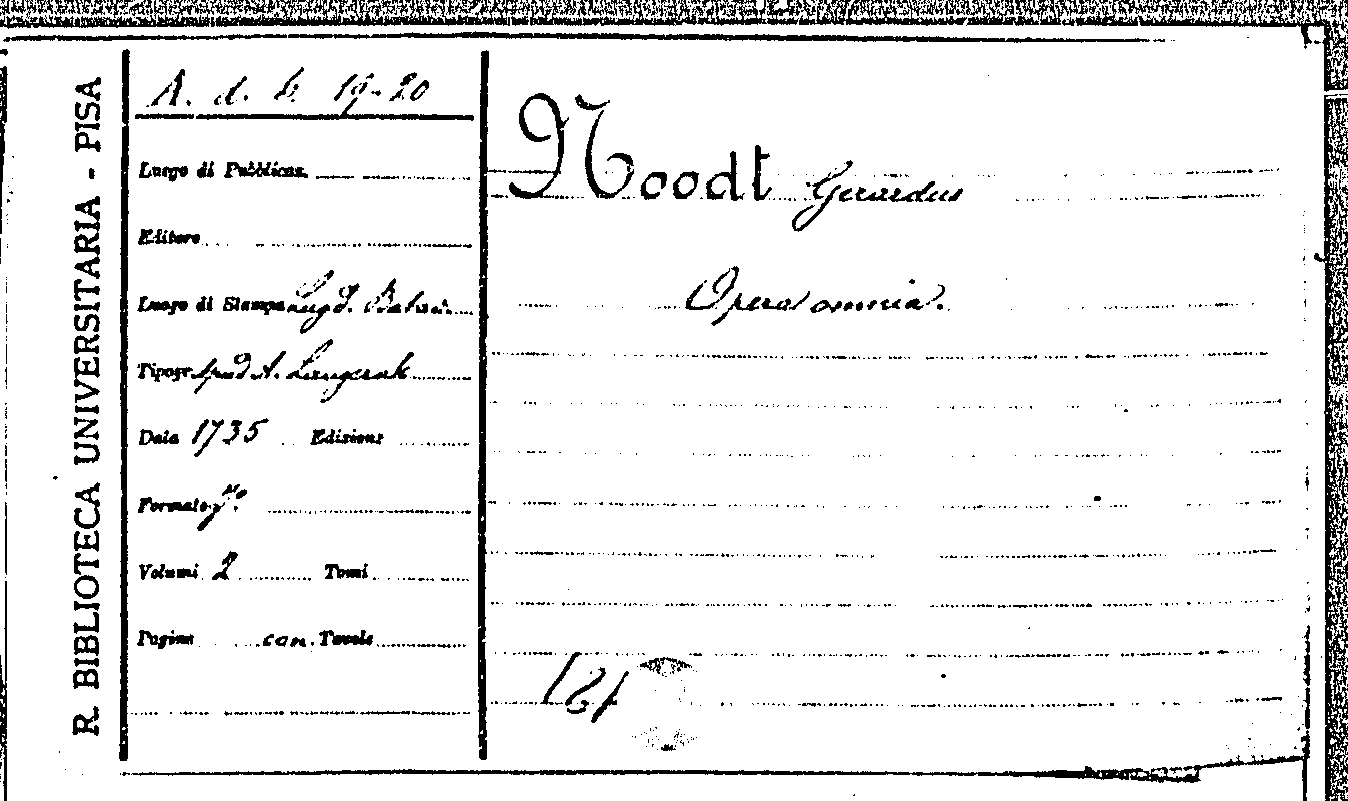 R. BIBLIOTECA UNIVERSITARIA - PISA
A. d. 6. 19-20
Luogo di Pubblicaz.
Editore
Luogo di Stampa Lugd. Batav.
Tipogr. Apud A. Langerak
Data 1735 Edizione
Formato fº.
Volumi 2 Tomi
Pagine con Tavole
Noodt Gerardus
Opera omnia.